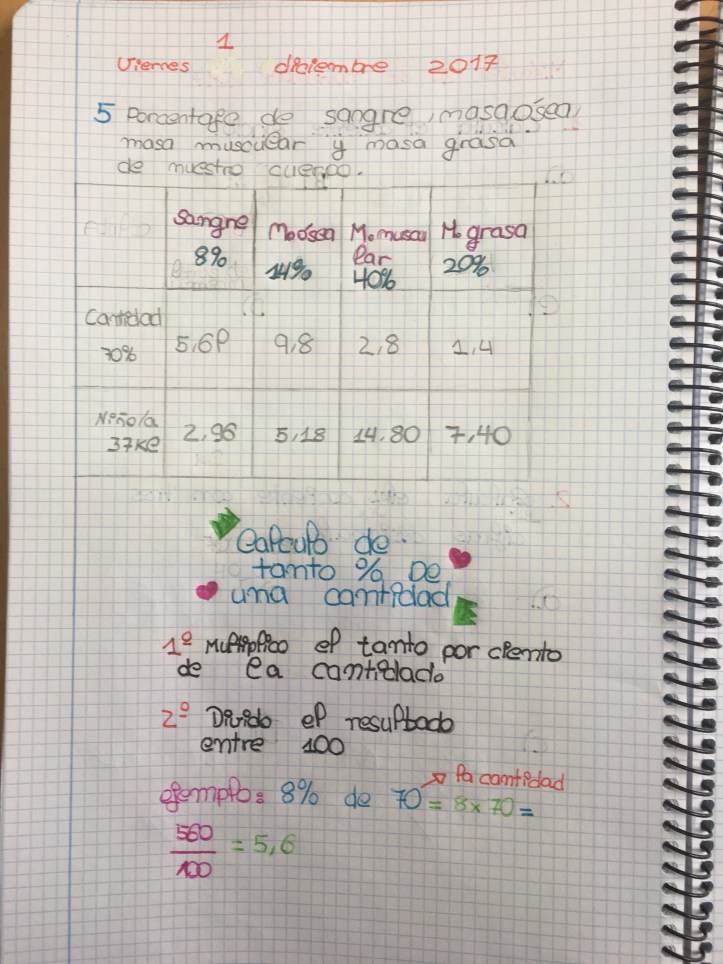 1
Viernes diciembre 2017
5 Porcentaje de sangre, masa ósea,
masa muscular y masa grasa
de nuestro cuerpo.
Sangre 8%
M. ósea 14%
M. muscular 40%
M. grasa 20%
Cantidad 70% 5,6l 9,8 2,8 1,4
Niño/a 37Kg 2,96 5,18 14,80 7,40
Calculo de
tanto % De
una cantidad
1º Multiplico el tanto por ciento
de la cantidad.
2º Divido el resultado
entre 100
la cantidad
ejemplo: 8% de 70 = 8x70 =
560
100
= 5,6